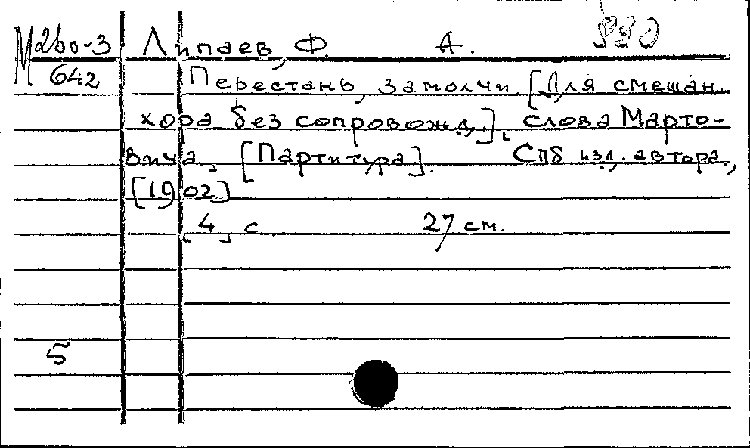 М260-3 Липаев, Ф. А.
642 Перестань, замолчи. [Для смешан.
хора без сопровожд.], слова Марто-
вича. [Партитура]. СПб изд. автора,
[1902]
[4] с. 27 см.
5